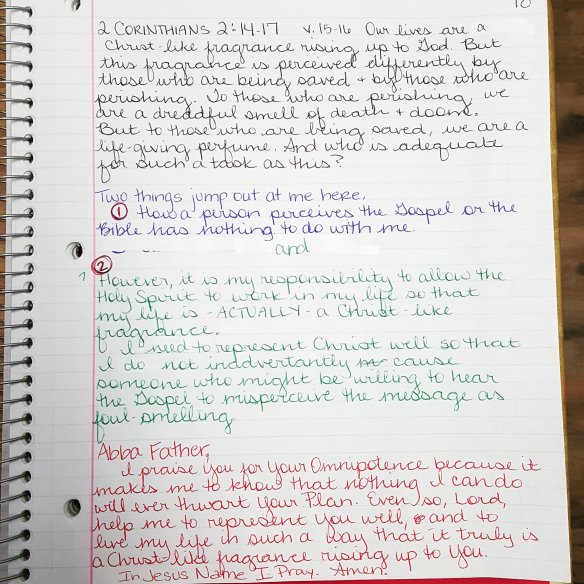 10
2 CORINTHIANS 2:14-17 v. 15-16 Our lives are a
Christ-like fragrance rising up to God. But
this fragrance is perceived differently by
those who are being saved + by those who are
perishing. To those who are perishing, we
are a dreadful smell of death + doom.
But to those who are being saved, we are a
life-giving perfume. And who is adequate
for such a task as this?
Two things jump out at me here.
① How a person perceives the Gospel or the
Bible has nothing to do with me.
and
②
However, it is my responsibility to allow the
Holy Spirit to work in my life so that
my life is -ACTUALLY- a Christ-like
fragrance.
I need to represent Christ well so that
I do not inadvertantly cause
someone who might be willing to hear
the Gospel to misperceive the message as
foul-smelling.
Abba Father,
I praise You for Your Omnipotence because it
makes me to know that nothing I can do
will ever thwart Your Plan. Even so, Lord,
help me to represent You well, and to
live my life in such a way that it truly is
a Christ-like fragrance rising up to You.
In Jesus Name I Pray. Amen.